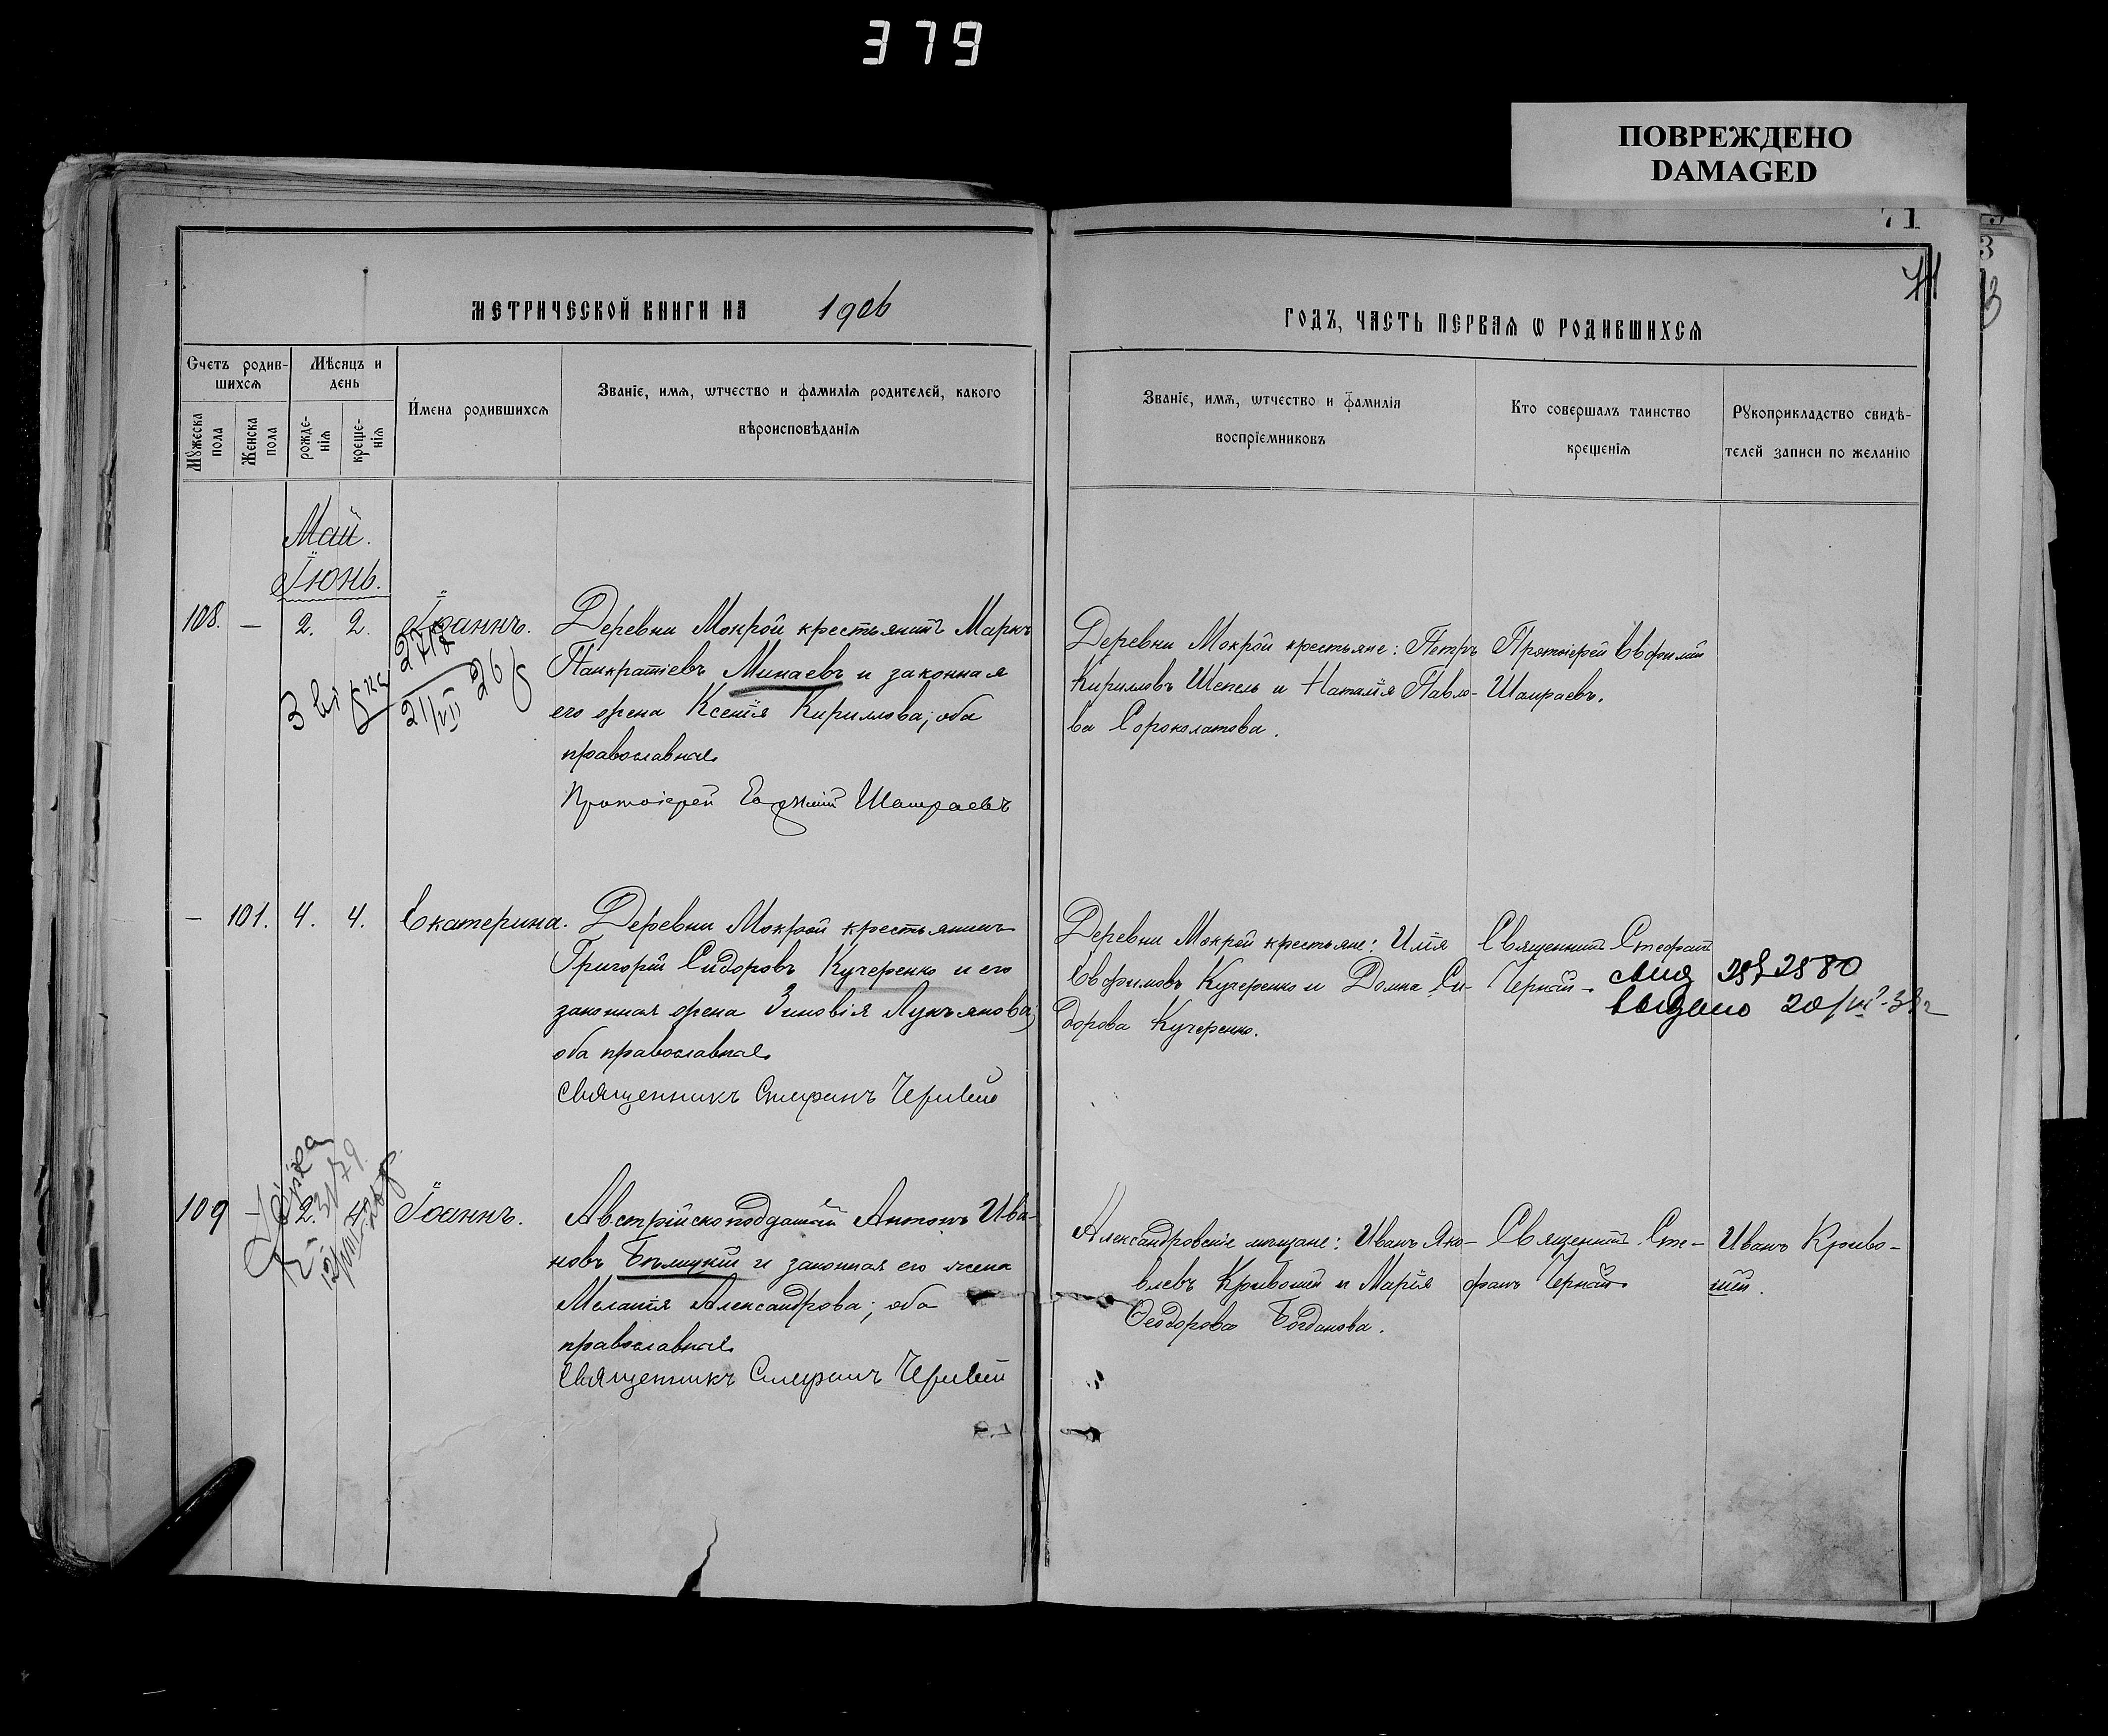 379
ПОВРЕЖДЕНО
DAMAGED
71
71
МЕТРИЧЕСКОЙ КНИГИ НА 1906
ГОДЪ, ЧАСТЬ ПЕРВАѦ Ѡ РОДИВШИХСѦ
Счетъ родив-
шихсѧ
Мужеска
пола
Женска
пола
Мѣсяцъ и
день
рожде-
нїѧ
креще-
нїѧ
Имена родившихсѧ
Званїе, имѧ, ѡтчество и фамилїѧ родителей, какого
вѣроисповѣданїѧ
Званїе, имѧ, ѡтчество и фамилїѧ
воспрїемниковъ
Кто совершалъ таинство
крещенїѧ
Рукоприкладство свидѣ-
телей записи по желанїю
Май.
Іюнь.
108. — 2. 2. Іоаннъ.
Деревни Мокрой крестьянинъ Маркъ
Панкратіевъ Минаевъ и законная
его жена Ксенія Кириллова; оба
православные.
Протоіерей Евфимій Шамраевъ
Деревни Мокрой крестьяне: Петръ
Кирилловъ Шепель и Наталія Павло-
ва Сороколатова.
Протоіерей Евфимій
Шамраевъ.
2712
21/VII 26
— 101. 4. 4. Екатерина.
Деревни Мокрой крестьянинъ
Григорій Сидоровъ Кучеренко и его
законная жена Зиновія Лукьянова;
оба православные.
Священникъ Стефанъ Чернявый
Деревни Мокрой крестьяне: Илія
Евфимовъ Кучеренко и Домна Си-
дорова Кучеренко.
Священникъ Стефанъ
2580
выдано 20/
109 — 2. 4. Іоаннъ.
Австрійскоподданный Антонъ Ива-
новъ Бѣлицкій и законная его жена
Меланія Александрова; оба
православные.
Священникъ Стефанъ Чернявый
Александровскіе мѣщане: Иванъ Яко-
влевъ Кривошій и Марія
Ѳеодорова Богданова.
Священникъ Сте-
фанъ
Иванъ Криво-
шій.